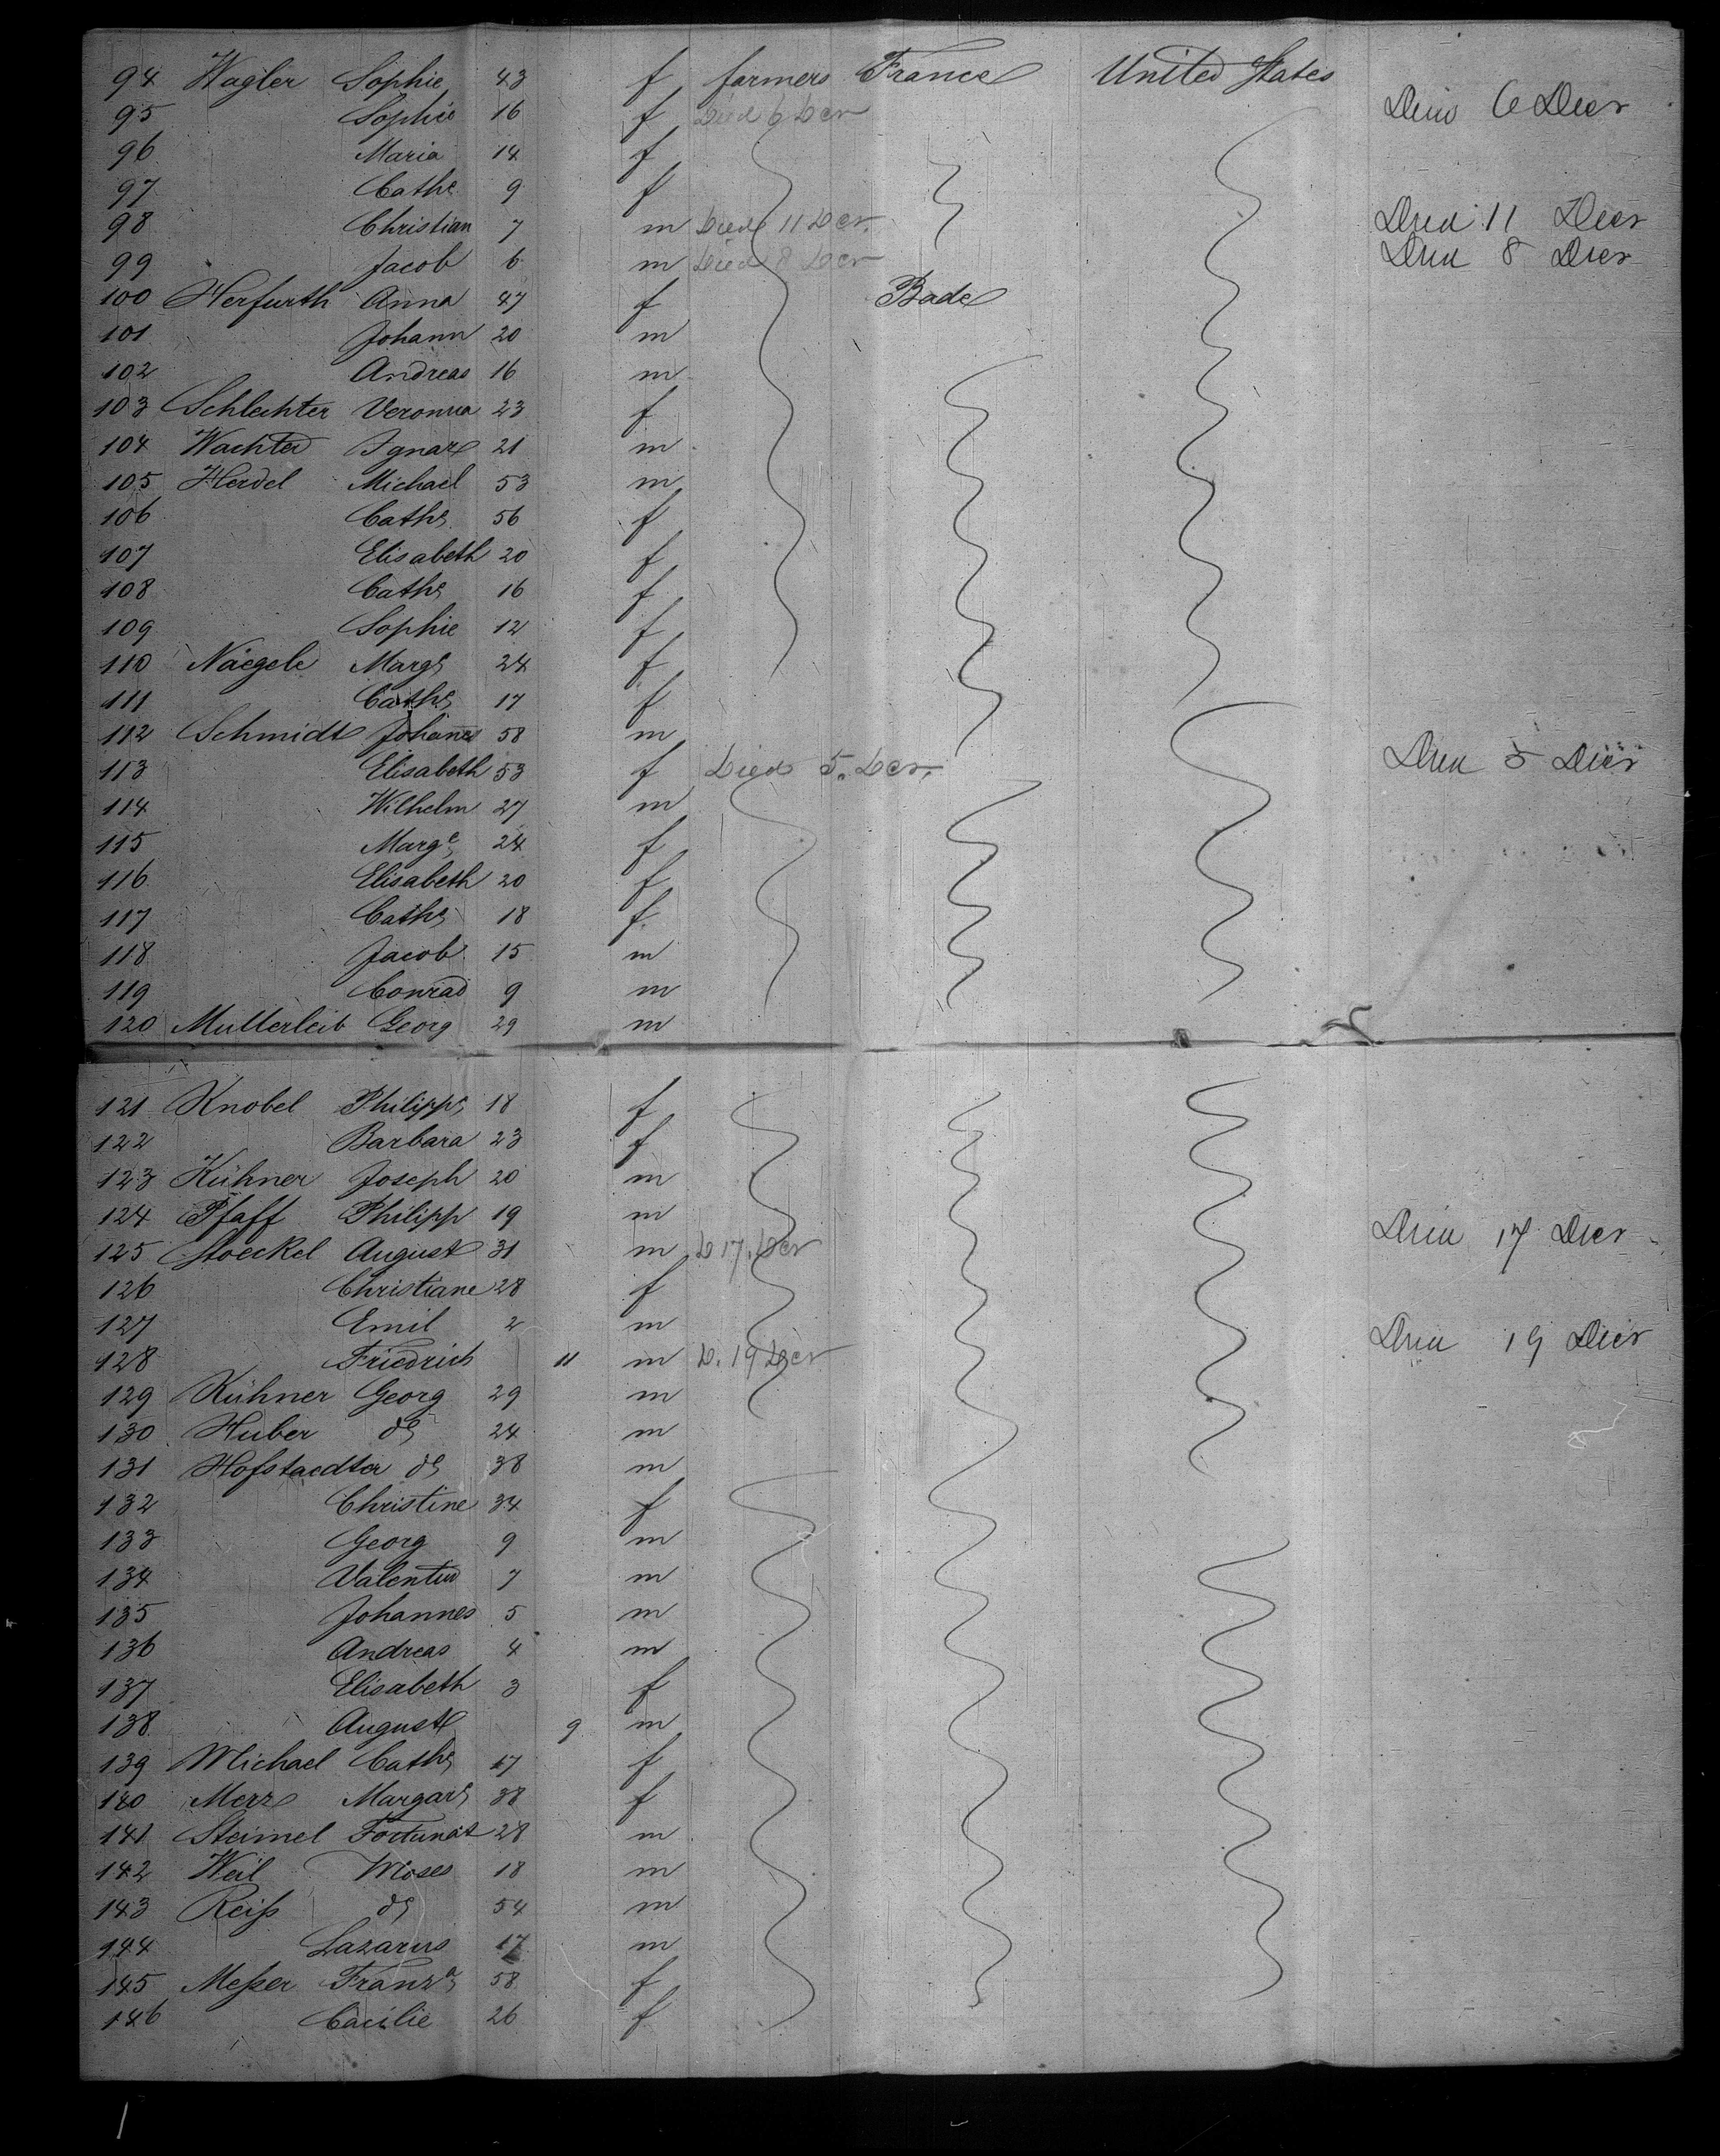 94 Wagler Sophie 43 f farmers France United States
95 Sophie 16 f Died 6 Decr Died 6 Decr
96 Maria 14 f
97 Cathe 9 f
98 Christian 7 m Died 11 Decr. Died 11 Decr
99 Jacob 6 m Died 8 Decr Died 8 Decr
100 Herfurth Anna 47 f Bade
101 Johann 20 m
102 Andreas 16 m
103 Schlechter Veronica 23 f
104 Wachter Ignaz 21 m
105 Herdel Michael 53 m
106 Cathe 56 f
107 Elisabeth 20 f
108 Cathe 16 f
109 Sophie 12 f
110 Näegele Marge 24 f
111 Cathe 17 f
112 Schmidt Johanes 58 m
113 Elisabeth 53 f Died 5. Decr. Died 5 Decr
114 Wilhelm 27 m
115 Marge 24 f
116 Elisabeth 20 f
117 Cathe 18 f
118 Jacob 15 m
119 Conrad 9 m
120 Mutterleib Georg 29 m
121 Knobel Philippe 18 f
122 Barbara 23 f
123 Kühner Joseph 20 m
124 Pfaff Philipp 19 m
125 Stoeckel August 31 m D 17. Decr Died 17 Decr
126 Christiane 28 f
127 Emil 2 m
128 Friedrich 11 m D. 19 Decr Died 19 Decr
129 Kühner Georg 29 m
130 Huber do 24 m
131 Hofstaedter do 38 m
132 Christine 34 f
133 Georg 9 m
134 Valentin 7 m
135 Johannes 5 m
136 Andreas 4 m
137 Elisabeth 3 f
138 August 9 m
139 Michael Cathe 17 f
140 Merz Margare 38 f
141 Steimel Fortunat 28 m
142 Weil Moses 18 m
143 Reiß do 54 m
144 Lazarus 17 m
145 Meßer Franza 58 f
146 Cäcilie 26 f